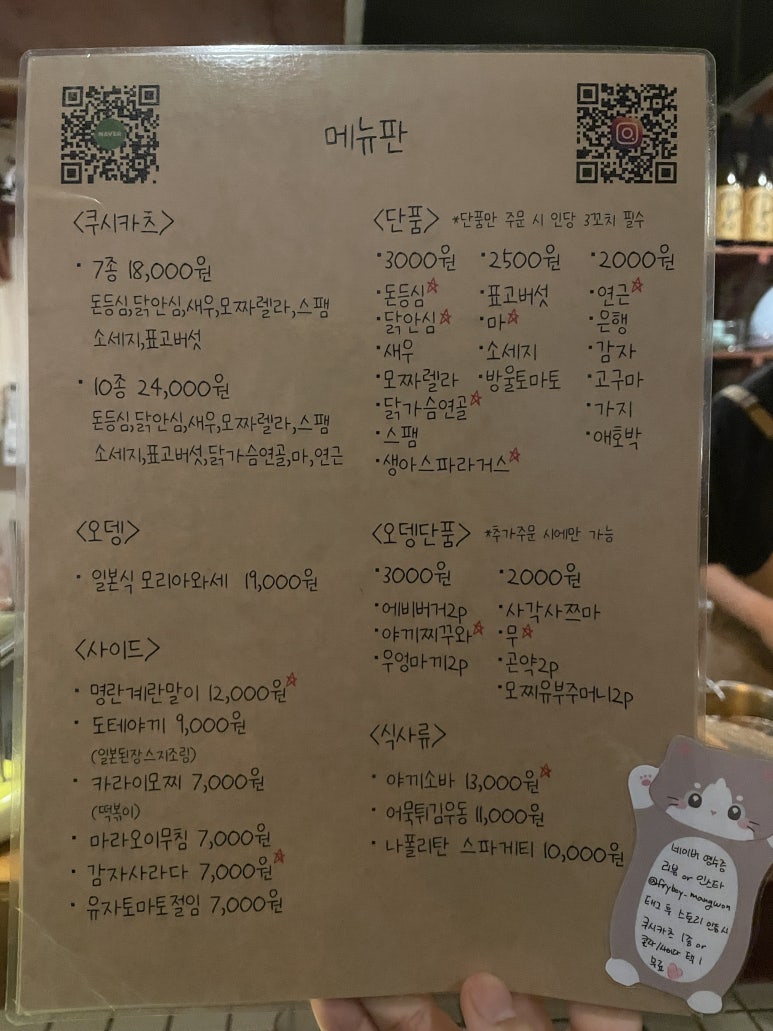 NAVER
메뉴판
<쿠시카츠>
· 7종 18,000원
돈등심,닭안심,새우,모짜렐라,스팸
소세지,표고버섯
· 10종 24,000원
돈등심,닭안심,새우,모짜렐라,스팸
소세지,표고버섯,닭가슴연골,마,연근
<단품> *단품만 주문 시 인당 3꼬치 필수
·3000원
·돈등심☆
·닭안심☆
·새우
·모짜렐라
·닭가슴연골☆
·스팸
·생아스파라거스☆
·2500원
·표고버섯
·마☆
·소세지
·방울토마토
·2000원
·연근☆
·은행
·감자
·고구마
·가지
·애호박
<오뎅>
· 일본식 모리아와세 19,000원
<오뎅단품> *추가주문 시에만 가능
·3000원
·에비버거2p
·야끼찌꾸와☆
·우엉마끼2p
·2000원
·사각사쯔마
·무☆
·곤약2p
·모찌유부주머니2p
<사이드>
· 명란계란말이 12,000원☆
· 도테야끼 9,000원
(일본된장스지조림)
· 카라이모찌 7,000원
(떡볶이)
· 마라오이무침 7,000원
· 감자사라다 7,000원☆
· 유자토마토절임 7,000원
<식사류>
· 야끼소바 13,000원☆
· 어묵튀김우동 11,000원
· 나폴리탄 스파게티 10,000원
네이버 영수증
리뷰 or 인스타
@fryboy_mangwon
태그 후 스토리 인증시
쿠시카츠 1종 or
콜라/사이다 택 1
무료